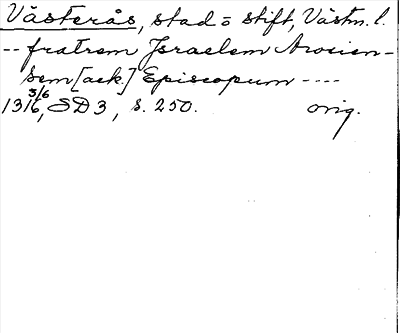 Västerås, stad o stift, Västm. l.
-- fratrem Israelem Arosien-
sem [ack.] Episcopum ----
1316 3/6, SD 3, s. 250. orig.